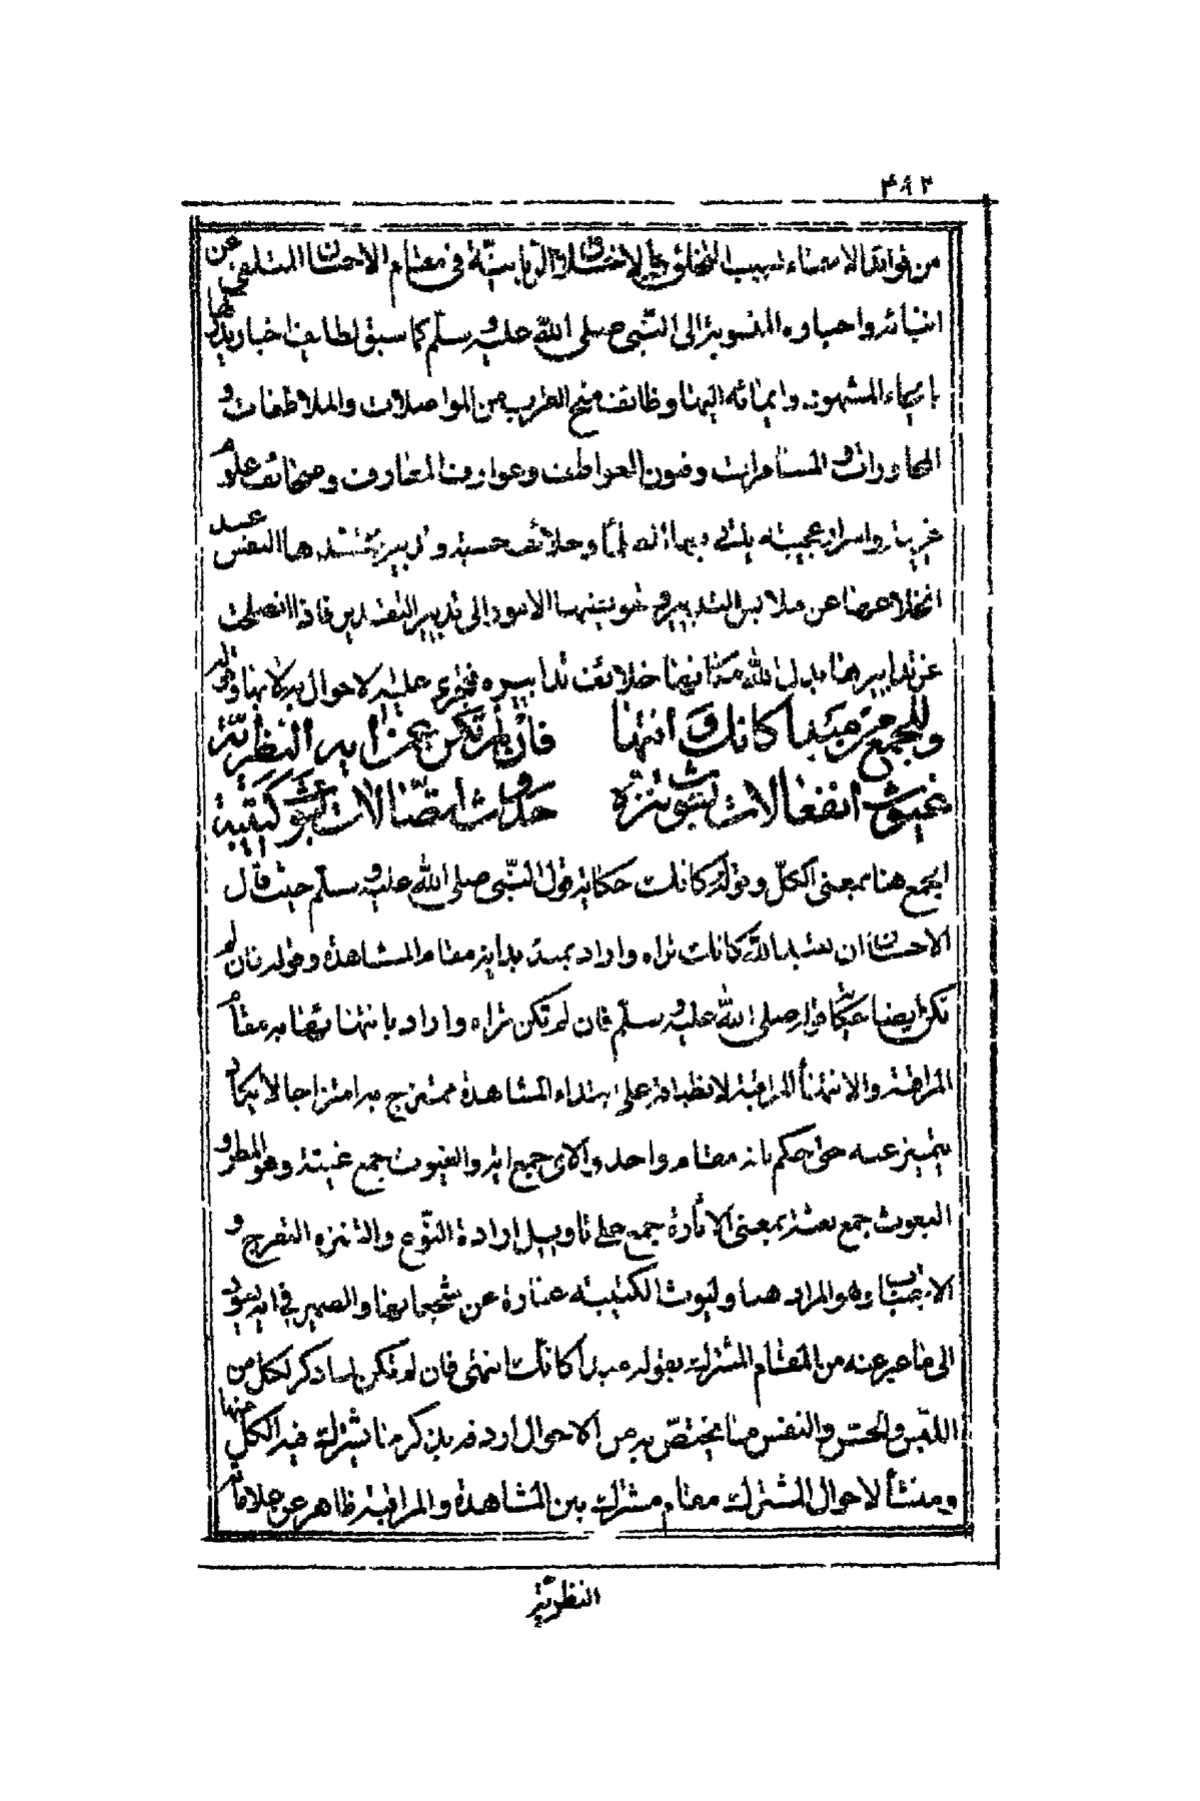 ٣٩٢
من فوائد الاسماء تهيب التخلق بالاخلاق الربانية في مقام الاحسان المتلقى عن
انبائه واخباره المنسوبة الى النبي صلى الله عليه وسلم كما سبق لطايف اخبار
بايماء المشهور وايمائه اليها وظائف منح القرب من المواصلات والملاطفات و
المحاورات والمسامرات وفنون العواطف وعوارف المعارف وصحائف علوم
غريبة واسرار عجيبة يلقى وخلائف حسية وتدبير النفس عند
انخلاعها عن ملابس التدبير وتفويتها الامور الى تدبير القدير فاذا انصلحت
عن تدابيرها بدل الله مكانها خلائف تدابيره فيجري عليه الاحوال وقوله
وللجمع من مبدا كانك وانتها فان لم تكن عن آية النظرية
غيوث انفعالات بعوث تنزه حدوث اتصالات ليوث كتيبة
الجمع هنا بمعنى الكل وقوله كانك حكاية قول النبي صلى الله عليه وسلم حيث قال
الاحسان ان تعبد الله كانك تراه واراد بمبدء بداية مقام المشاهدة وقوله فان لم
تكن ايضا حكاية قوله صلى الله عليه وسلم فان لم تكن تراه واراد بانتها نهاية مقام
المراقبة والانتهاء المراقبة لانطباقه على ابتداء المشاهدة ممتزج به امتزاجا لا يكاد
يتميز عنه حتى حكم بانه مقام واحد والآى جمع اية والغيوث جمع غيث وهو المطر و
البعوث جمع بعث بمعنى الاثارة جمع على تاويل ارادة النوع والتنزه التفرج و
الارتياب وهو المراد هنا وليوث الكتيبة عبارة عن شجعانها والضمير في اية يعود
الى ما عبر عنه من المقام المشترك بقوله مبدأ كانك انتهى فان لم تكن لما ذكر لكل من
اللبس والحس والنفس ما يختص به من الاحوال اردفه بذكر ما يشترك فيه الكل منها
ومنشأ الاحوال المشترك مقام مشترك بين المشاهدة والمراقبة ظاهر عن علامات
النظرية